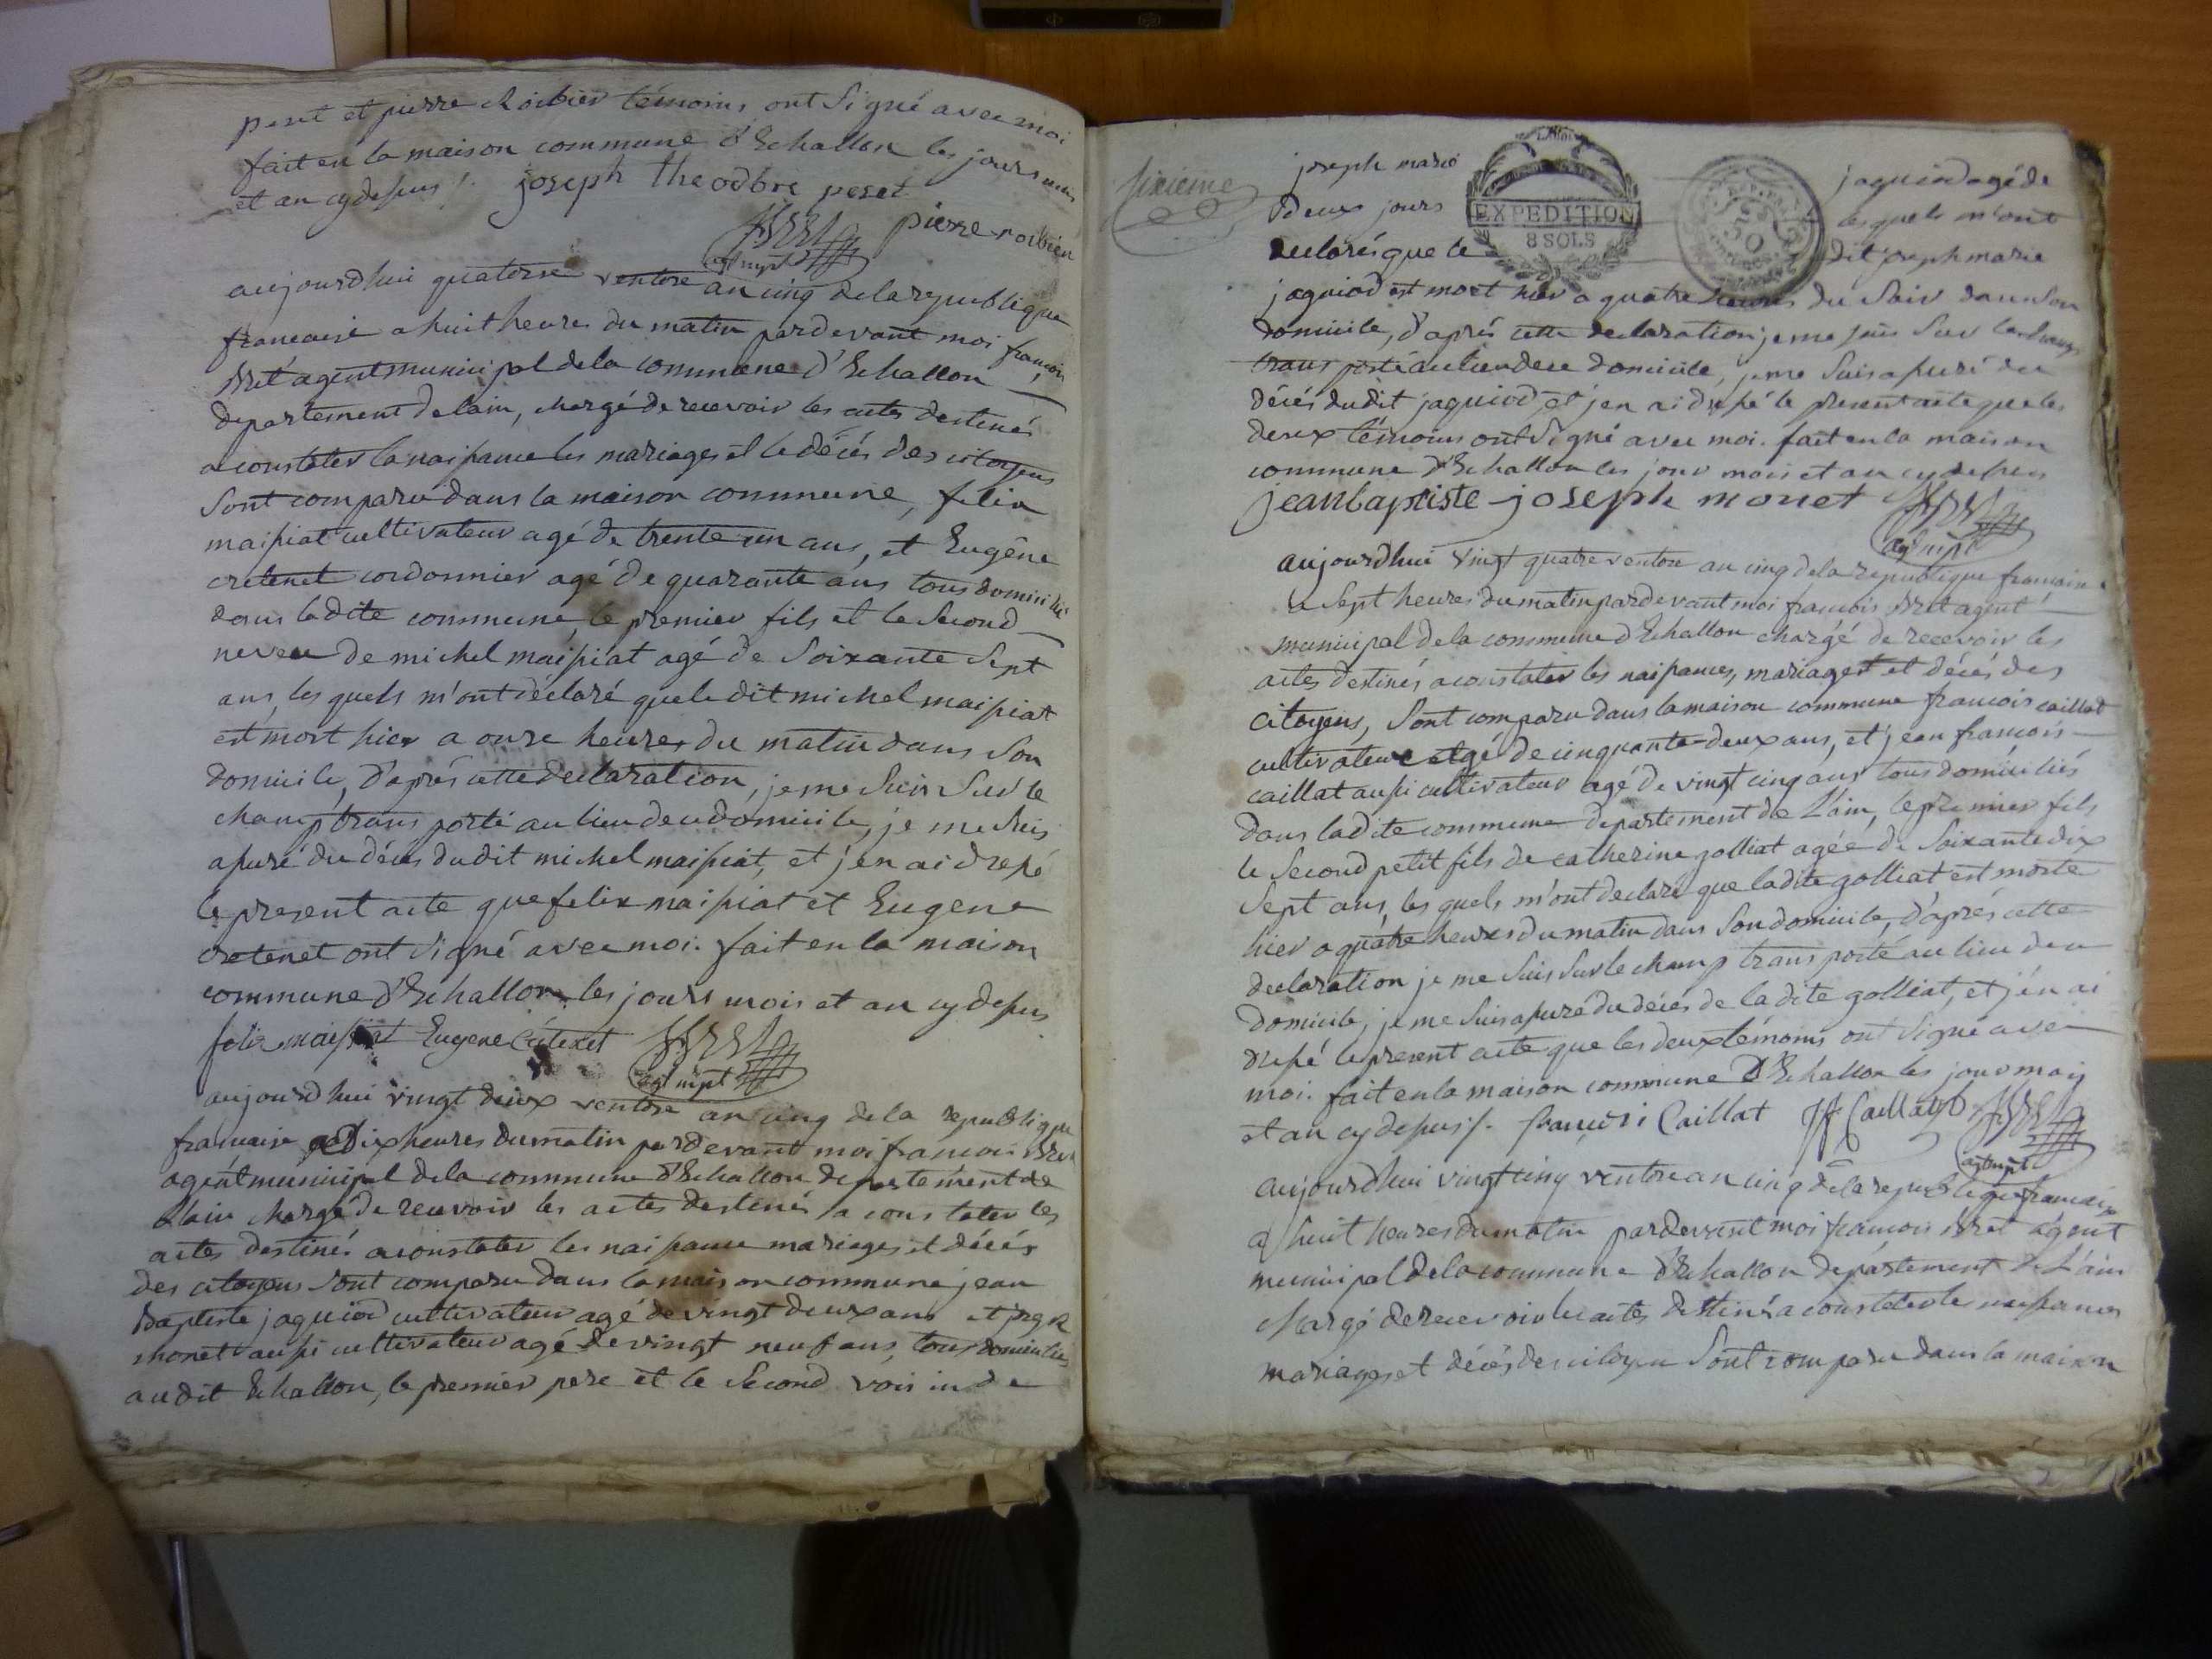 peret et pierre Roibier témoins ont Signé avec moi
fait en la maison commune d'Echallon les jours mois
et an cy depus /. joseph theodore peset
pierre roibier
agt mpl
aujourdhui quatorse ventose an cinq de la republique
francaise a huit heures du matin pardevant moi francois
Bret agent municipal de la commune d'Echallon
departement de lain, chargé de recevoir les actes destinés
a constater la naissance les mariages et le décés des citoyens
Sont comparu dans la maison commune, felix
maissiat cultivateur agé de trente un ans, et Eugêne
cretenet cordonnier agé de quarante ans tous domiciliés
dans ladite commune, le premier fils et le Second
neveu de michel maissiat agé de Soixante Sept
ans, les quels m'ont déclaré que le dit michel maissiat
est mort hier a onze heures du matin dans Son
domicile, d'aprés cette declaration, je me Suis Sur le
champ trans porté au lieu de ce domicile, je me Suis
assuré du décés dudit michel maissiat, et j'en ai dressé
le present acte que felix maissiat et Eugene
cretenet ont Signé avec moi. fait en la maison
commune d'Echallon les jours mois et an cy depus
felix maissiat Eugene Cretenet
agt mpl
aujourdhui vingt deux ventose an cinq de la republique
francaise a dix heures du matin pardevant moi francois Bret
agent municipal de la commune d'Echallon departement de
l'ain chargé de recevoir les actes destinés a constater les
actes destinés a constater les naissance mariages et décés
des citoyens Sont comparu dans la maison commune jean
Baptiste jaquiod cultivateur agé de vingt deux ans et
monet aussi cultivateur agé de vingt neuf ans, tous domiciliés
audit Echallon, le premier pere et le Second voisin de
Sixieme
joseph marie jaquiod agé de
deux jours les quels m'ont
declarés que le dit joseph marie
EXPEDITION
8 SOLS
jaquiod est mort hier a quatre heures du Soir dans Son
domicile, d'aprés cette declaration je me suis Sur le champ
trans porté au lieu de ce domicile, je me Suis assuré du
décés dudit jaquiod et j'en ai dressé le present acte que les
deux témoins ont Signé avec moi. fait en la maison
commune d'Echallon les jour mois et an cy depus
jeanbaptiste joseph monet
agt mpl
aujourdhui vingt quatre ventose an cinq de la republique francaise
a Sept heures du matin pardevant moi francois Bret agent
municipal de la commune d'Echallon chargé de recevoir les
actes destinés a constater les naissances, mariages et décés des
citoyens, Sont comparu dans la maison commune francois caillat
cultivateur agé de cinquante deux ans, et jean francois
caillat aussi cultivateur agé de vingt cinq ans tous domiciliés
dans ladite commune departement de L'ain, le premier fils
le Second petit fils de catherine golliat agée de Soixante dix
Sept ans, les quels m'ont declaré que ladite golliat est morte
hier a quatre heures du matin dans Son domicile, d'aprés cette
declaration je me Suis Sur le champ trans porté au lieu de ce
domicile, je me Suis assuré du décés de la dite golliat, et j'en ai
dressé le present acte que les deux témoins ont Signé avec
moi. fait en la maison commune d'Echallon les jour moy
et an cy depus /. françois Caillat Jf Caillat
agt mpl
aujourdhui vingt cinq ventose an cinq de la republique francaise
a huit heures du matin pardevant moi francois Bret agent
municipal de la commune d'Echallon departement de L'ain
chargé de recevoir les actes destinés a constater les naissances
mariages et décés des citoyens Sont comparu dans la maison